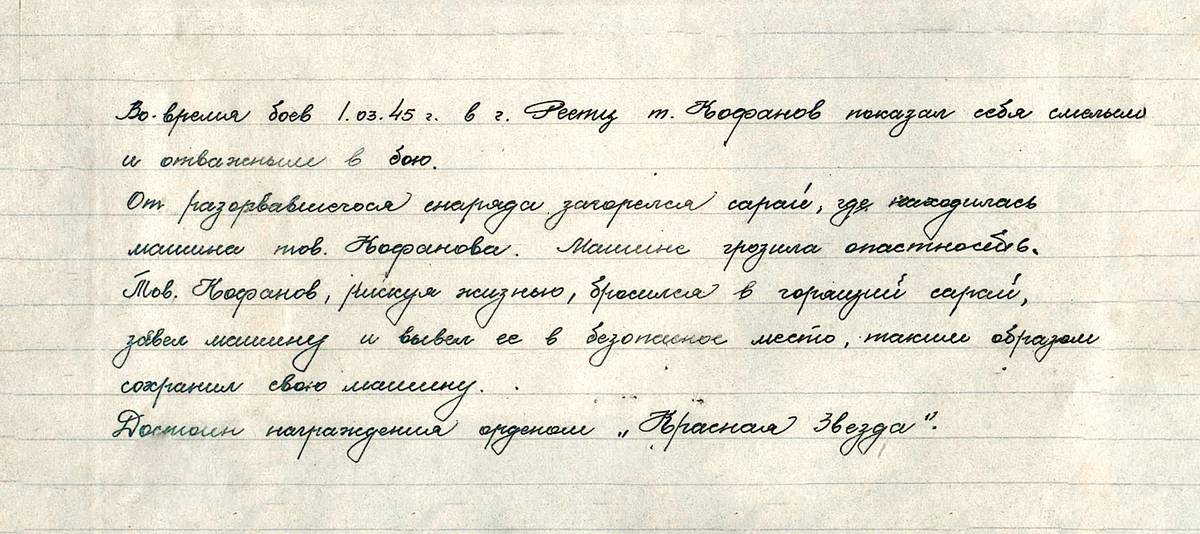 Во время боев 1.03.45 г. в г. Рестц т. Кофанов показал себя смелым
и отважным в бою.
От разорвавшегося снаряда загорелся сарай, где находилась
машина тов. Кофанова. Машине грозила опастность.
Тов. Кофанов, рискуя жизнью, бросился в горящий сарай,
завел машину и вывел ее в безопасное место, таким образом
сохранил свою машину.
Достоин награждения орденом „Красная Звезда".